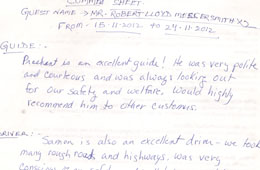 COMMENT SHEET
GUEST NAME > MR. ROBERT LLOYD MERCERSMITH X2
FROM - 15-11-2012 TO 24-11-2012
GUIDE:-
is an excellent guide! He was very polite
and courteous and was always looking out
for our safety and welfare. Would highly
recommend him to other customers.
DRIVER:- Saman is also an excellent driver - we took
many rough roads and highways. was very